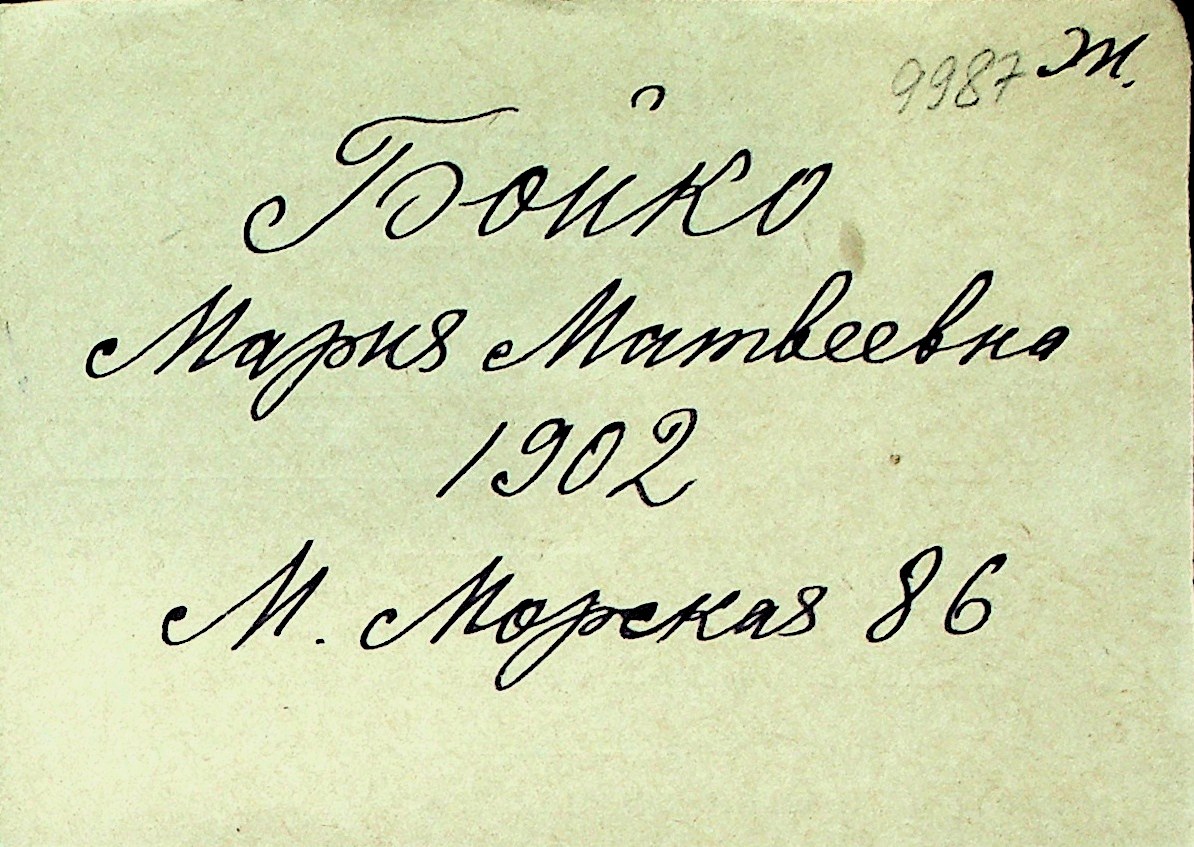 9987 Т.
Бойко
Мария Матвеевна
1902
М. Морская 86